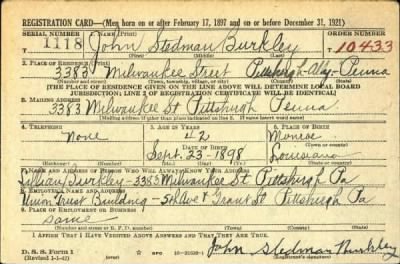 REGISTRATION CARD—(Men born on or after February 17, 1897 and on or before December 31, 1921)
SERIAL NUMBER 1. NAME (Print) ORDER NUMBER
1118 John Stedman Burkley 10433
2. PLACE OF RESIDENCE (Print)
3383 Milwaukee Street Pittsburgh Penna
(Number and street) (Town, township, village, or city) (County) (State)
[THE PLACE OF RESIDENCE GIVEN ON THE LINE ABOVE WILL DETERMINE LOCAL BOARD
JURISDICTION; LINE 2 OF REGISTRATION CERTIFICATE WILL BE IDENTICAL]
3. MAILING ADDRESS
3383 Milwaukee St Pittsburgh Penna.
[Mailing address if other than place indicated on line 2. If same insert word same]
4. TELEPHONE 5. AGE IN YEARS 6. PLACE OF BIRTH
None 42 Monroe
DATE OF BIRTH (Town or county)
Sept. 23-1898 Louisiana
(Exchange) (Number) (Mo.) (Day) (Yr.) (State or country)
7. NAME AND ADDRESS OF PERSON WHO WILL ALWAYS KNOW YOUR ADDRESS
Lillian Burkley-3383 Milwaukee St Pittsburgh Pa
8. EMPLOYER'S NAME AND ADDRESS
Union Trust Building - 5th Ave & Grant St Pittsburgh Pa
9. PLACE OF EMPLOYMENT OR BUSINESS
same
(Number and street or R. F. D. number) (Town) (County) (State)
I AFFIRM THAT I HAVE VERIFIED ABOVE ANSWERS AND THAT THEY ARE TRUE.
D. S. S. FORM 1
(Revised 1-1-42) (over) GPO John Stedman Burkley